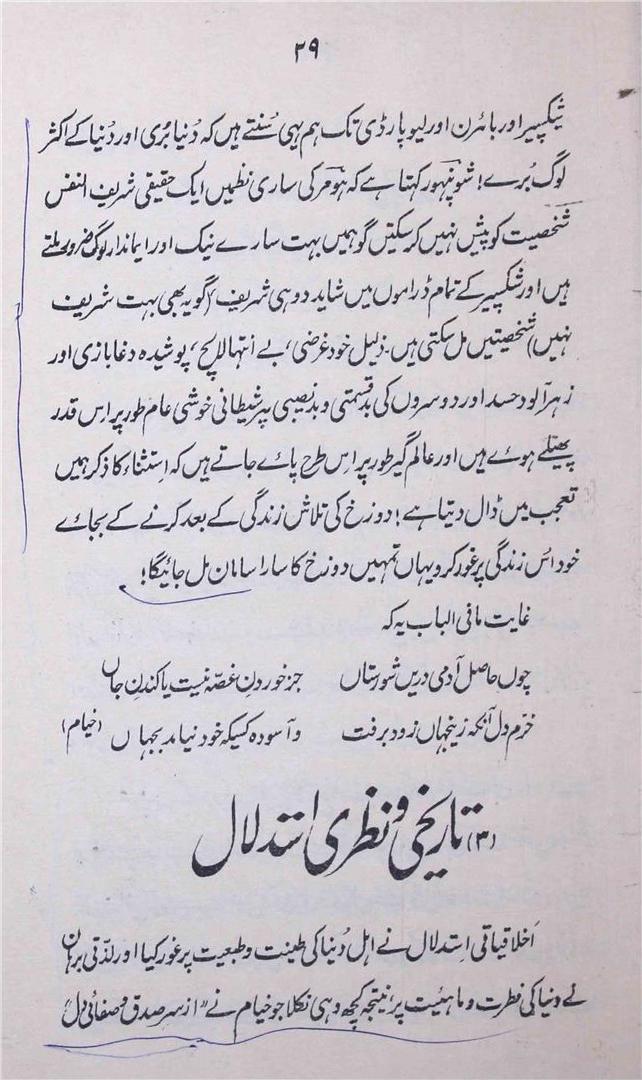 ۳۹
شکسپیر اور بائرن اور لیوپارڈی تک ہم یہی سُنتے ہیں کہ دُنیا بُری اور دُنیا کے اکثر
لوگ بُرے! شوپنہور کہتا ہے کہ ہومر کی ساری نظمیں ایک حقیقی شریف النفس
شخصیت کو پیش نہیں کر سکتیں گو ہمیں بہت سارے نیک اور ایماندار لوگ ضرور ملتے
ہیں اور شکسپیر کے تمام ڈراموں میں شاید دو ہی شریف (گو یہ بھی بہت شریف
نہیں) شخصیتیں مل سکتی ہیں۔ ذلیل خود غرضی، بے انتہا لالچ، پوشیدہ دغا بازی اور
زہر آلود حسد اور دوسروں کی بدقسمتی و بدنصیبی پر شیطانی خوشی عام طور پر اس قدر
پھیلے ہوئے ہیں اور عالم گیر طور پر اِس طرح پائے جاتے ہیں کہ اِستثناء کا ذکر ہمیں
تعجب میں ڈال دیتا ہے! دوزخ کی تلاش زندگی کے بعد کرنے کے بجائے
خود اس زندگی پر غور کرو یہاں تمہیں دوزخ کا سارا سامان مل جائیگا!
غایت مافی الباب یہ کہ
چوں حاصل آدمی دریں شورستاں جز خوردنِ غصّہ نیست یا کندنِ جاں
خرّم دل آنکہ زینجہاں زود برفت و آسودہ کسیکہ خود نیامد بجہاں (خیام)
(۳) تاریخی و نظری استدلال
اَخلاقیاتی اِستدلال نے اہل دُنیا کی طینت و طبیعت پر غور کیا اور لذّتی برہان
نے دنیا کی فطرت و ماہئیت پر، نیتجہ کچھ وہی نکلا جو خیام نے "از سرِ صدق و صفائی دل"